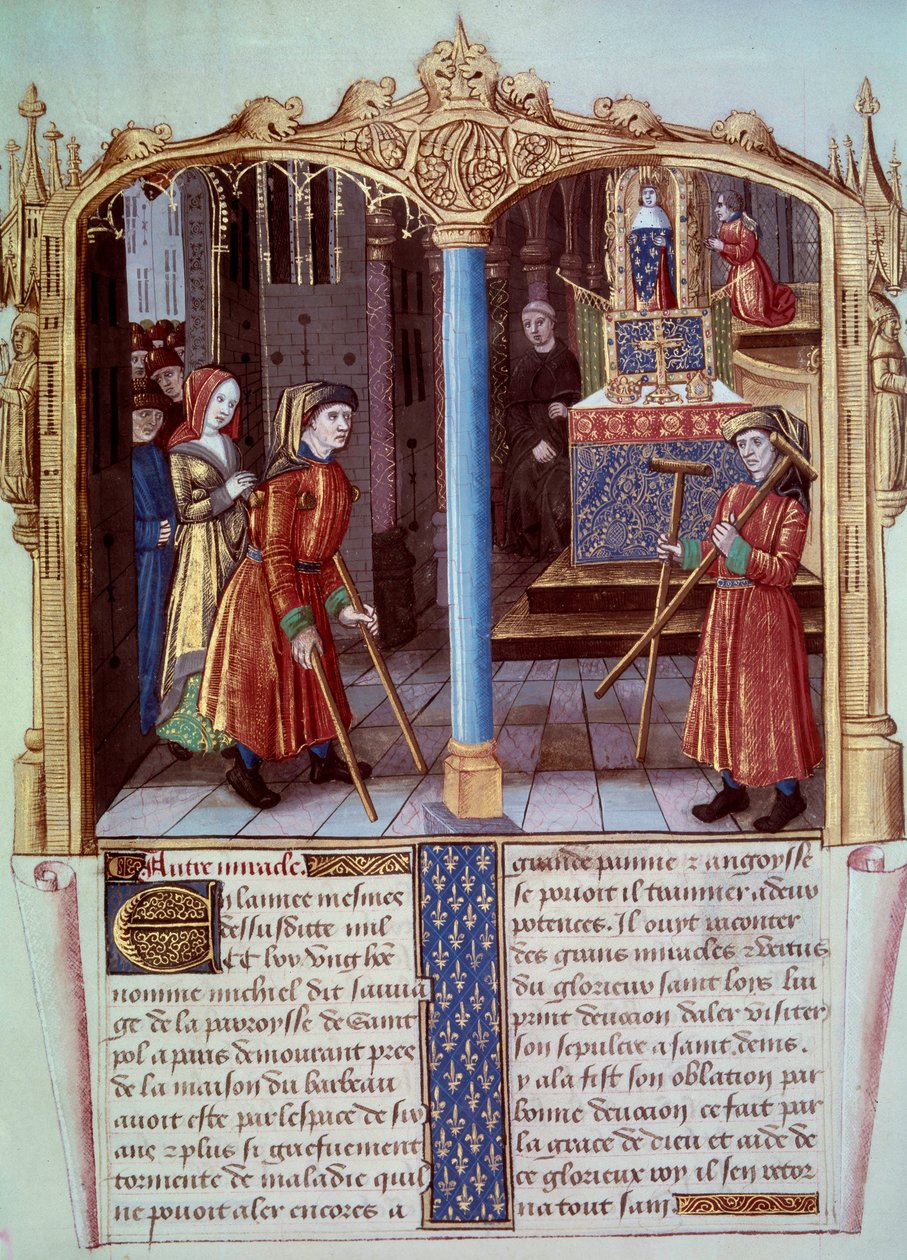 Autre miracle.
En lannee mesmes
dessusditte mil
CC lxv vng hõe
nomme michiel dit sauua
ge de la parroysse de saint
pol a paris demourant pres
de la maison du barbeau
auoit este par lespace de six
ans ⁊ plus si griefuement
tormente de maladie quil
ne pouoit aler encores a
grande painne ⁊ angoysse
se pouoit il trainner a deux
potences. Il ouyt raconter
des grans miracles ⁊ vertus
du glorieux saint loys lui
print deuocion daler visiter
son sepulcre a saint denis.
y ala fist son oblation par
bonne deuocion ce fait par
la grace de dieu et aide de
ce glorieux roy il sen retor
na tout sain